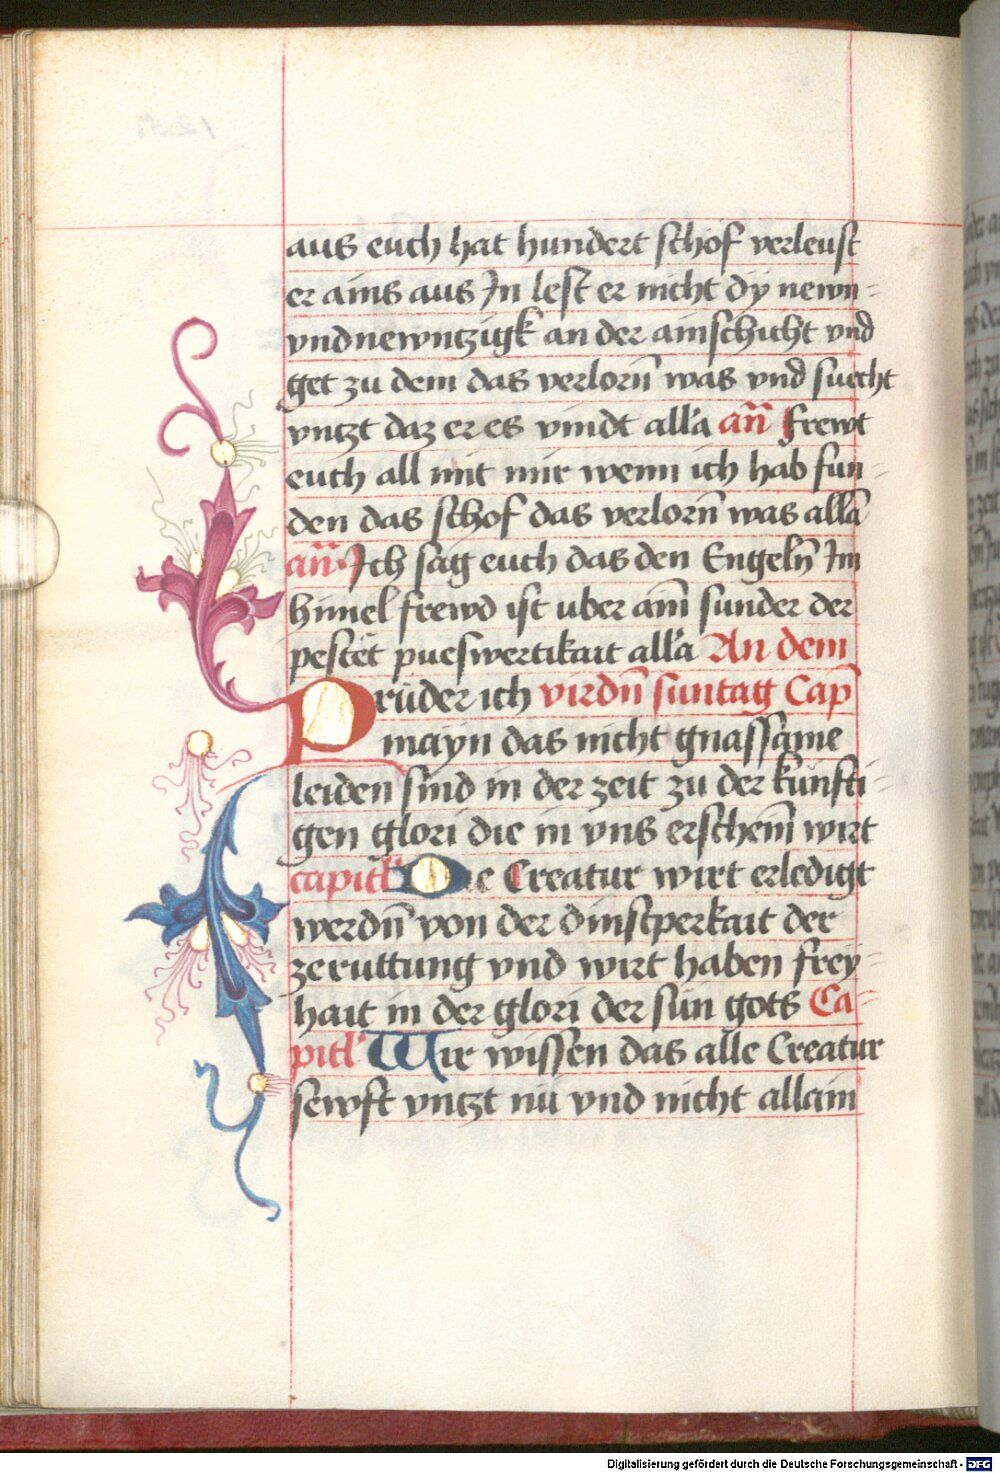 aus euch hat hundert schof verleust
er ains aus Jn lest er nicht dÿ newn-
vndnewntzigk an der ainschicht vnd
get zu dem das verlorn̄ was vnd suecht
vntzt daz er es vindt all'a an̄ frewt
euch all mit mir wenn ich hab fun-
den das schof das verlorn̄ was alla
an̄ Jch sag euch das den Engeln̄ Jm
himel frewd ist uber aim̄ sunder der
pestet pueswertikait all'a An dem
Prüder ich virdn̄ suntag Cap
mayn das nicht gnassame
leiden sind in der zeit zu der künfti-
gen glori die in vns erschein̄ wirt
capitl' Die Creatur wirt erledigt
werdn̄ von der dinstperkait der
zeruttung vnd wirt haben freÿ-
hait in der glori der sün gots Ca-
pitl' Wir wissen das alle Creatur
sewft vntzt nü vnd nicht allain
Digitalisierung gefördert durch die Deutsche Forschungsgemeinschaft - DFG